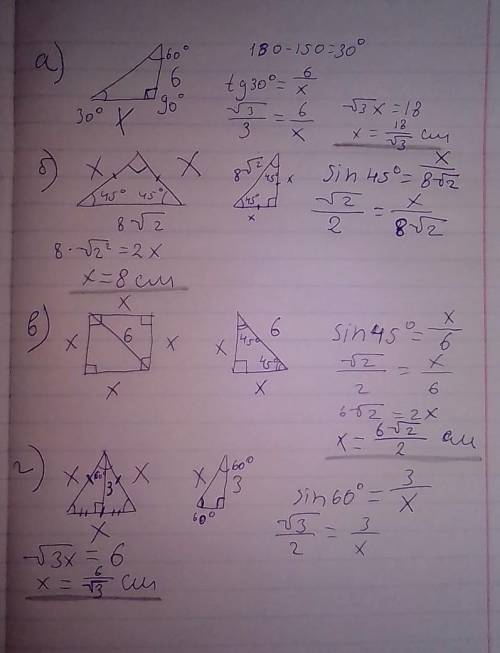 а)
60°
6
90°
30°
x
180-150=30°
tg30°= 6/x
√3/3 = 6/x
√3x=18
x= 18/√3 см
б)
x x
45° 45°
8√2
8√2
45°
x
45°
x
sin 45°= x/8√2
√2/2 = x/8√2
8·√2²=2x
x=8 см
в)
x
x 6 x
x
45° 6
x
45°
x
sin45°= x/6
√2/2 = x/6
6√2=2x
x= 6√2/2 см
г)
x x
60°
3
x
x 60°
3
60°
sin60°= 3/x
√3/2 = 3/x
√3x=6
x= 6/√3 см